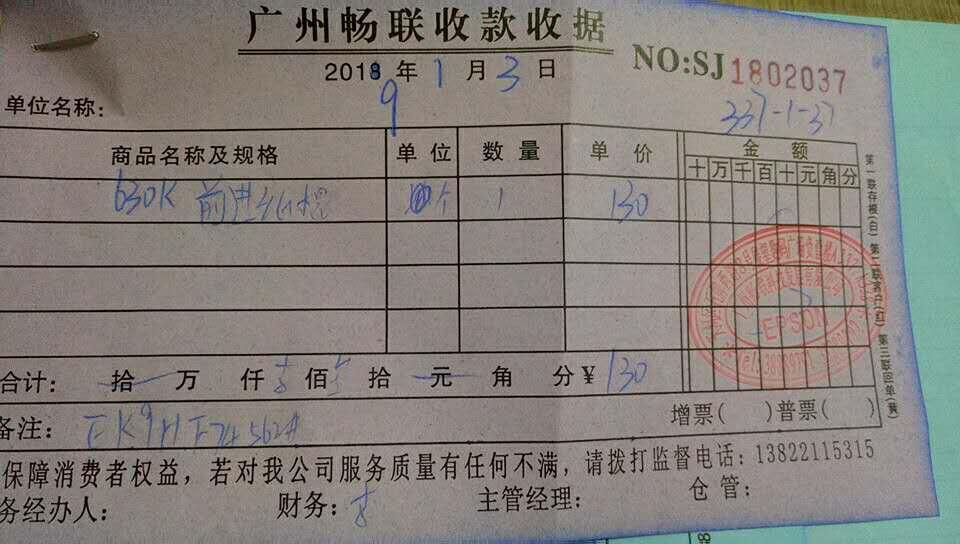 广州畅联收款收据
2018年1月3日 NO:SJ 1802037
9
单位名称: 337-1-37
商品名称及规格 单位 数量 单价 金额
十万千百十元角分
630K 前进纸 个 1 130
第一联存根(白) 第二联客户(红) 第三联回单(黄)
EPSON
合计: 拾 万 仟 佰 拾 元 角 分¥ 130
增票( )普票( )
备注: EK9HF74562#
保障消费者权益,若对我公司服务质量有任何不满,请拨打监督电话:13822115315
务经办人: 财务: 主管经理: 仓管: